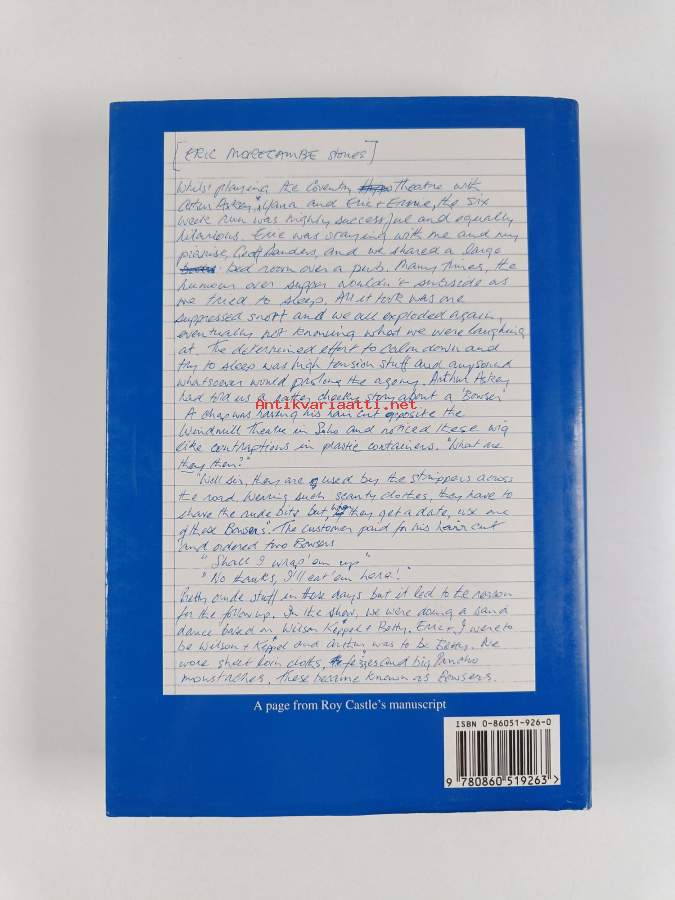 [ERIC MORECAMBE Stories]
Whilst playing the Coventry Theatre with
Arthur Askey, Yana and Eric + Ernie, the six
week run was highly successful and equally
hilarious. Eric was staying with me and my
pianist, Geoff Sanders, and we shared a large
bed room over a pub. Many times, the
humour over supper wouldn't subside as
we tried to sleep. All it took was one
suppressed snort and we all exploded again,
eventually not knowing what we were laughing
at. The determined effort to calm down and
try to sleep was high tension stuff and any sound
whatsoever would prolong the agony. Arthur Askey
had told us a rather cheeky story about a 'Bowser'
Antikvariaatti.net
A chap was having his hair cut opposite the
Windmill Theatre in Soho and noticed these wig
like contraptions in plastic containers. "What are
they then?"
"Well sir, they are used by the strippers across
the road. Wearing such scanty clothes, they have to
shave the rude bits but, when they get a date, use one
of these Bowsers". The customer paid for his hair cut
and ordered two Bowsers
"Shall I wrap 'em up"
"No thanks, I'll eat 'em here!"
Pretty crude stuff in those days but it led to the reason
for the following. In the show, we were doing a sand
dance based on Wilson Keppel + Betty. Eric + I were to
be Wilson + Keppel and Arthur was to be Betty. We
wore short loin cloths, fezzes and big Pancho
moustaches. These became known as Bowsers.
A page from Roy Castle's manuscript
ISBN 0-86051-926-0
9 780860 519263 >